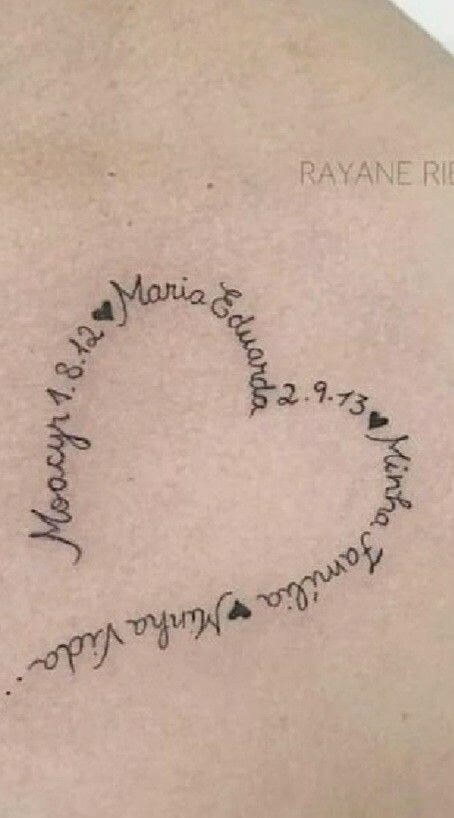 RAYANE RIB
Moacyr 1.8.12 ♥ Maria Eduarda 2.9.13 ♥ Minha Família ♥ Minha Vida...